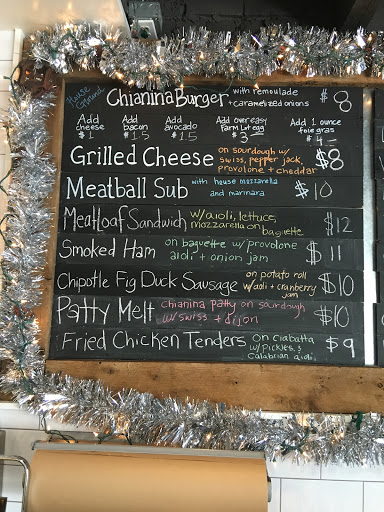 House Ground Chianina Burger with remoulade $8
+ caramelized onions
Add Add Add Add over easy Add 1 ounce
cheese bacon avocado Farm Lot egg foie gras
$1 $1.5 $1.5 $3 $4
Grilled Cheese on sourdough w/ $8
swiss, pepper jack,
provolone + cheddar
Meatball Sub with house mozzarella $10
and marinara
Meatloaf Sandwich w/aioli, lettuce, $12
mozzarella on baguette
Smoked Ham on baguette w/ provolone $11
aioli + onion jam
Chipotle Fig Duck Sausage on potato roll $10
w/aoli + cranberry
jam
Patty Melt chianina patty on sourdough $10
w/swiss + dijon
Fried Chicken Tenders on ciabatta $9
w/ pickles &
calabrian aioli